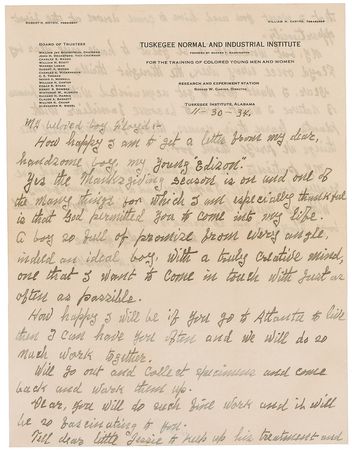 ROBERT R. MOTON, PRINCIPAL
WILLIAM H. CARTER, TREASURER
BOARD OF TRUSTEES
TUSKEGEE NORMAL AND INDUSTRIAL INSTITUTE
FOUNDED BY BOOKER T. WASHINGTON
FOR THE TRAINING OF COLORED YOUNG MEN AND WOMEN
RESEARCH AND EXPERIMENT STATION
GEORGE W. CARVER, DIRECTOR
TUSKEGEE INSTITUTE, ALABAMA
11-30-34.
My beloved boy Lloyd:-
How happy I am to get a letter from my dear,
handsome boy, my young "Edison".
Yes the Thanksgiving season is on and one of
the many things for which I am especially thankful
is that God permitted you to come into my life.
A boy so full of promise from every angle,
indeed an ideal boy, with a truly creative mind,
one that I want to come in touch with just as
often as possible.
How happy I will be if you go to Atlanta to live
then I can have you often and we will do so
much work together.
Will go out and collect specimens and come
back and work them up.
Dear, you will do such fine work and it will
be so fascinating to you.
Tell dear little Jessie to keep up his treatment and